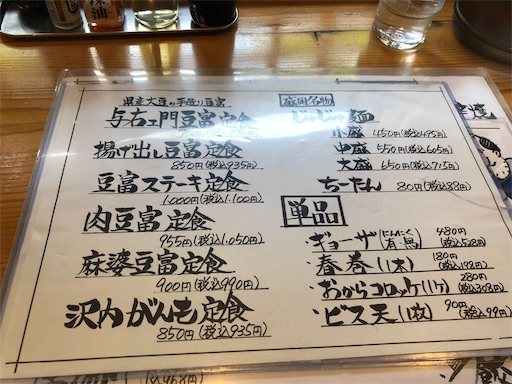 県産大豆の手造り豆富
与右ェ門豆富定食
揚げ出し豆富定食
850円(税込935円)
豆富ステーキ定食
1,000円(税込1,100円)
肉豆富定食
955円(税込1,050円)
麻婆豆富定食
900円(税込990円)
沢内がんも定食
850円(税込935円)
盛岡名物
じゃじゃ麺
小盛 450円(税込495円)
中盛 550円(税込605円)
大盛 650円(税込715円)
ちーたん 80円(税込88円)
単品
・ギョーザ(にんにく有・無) 480円(税込528円)
・春巻(1本) 180円(税込198円)
・おからコロッケ(1ケ) 280円(税込308円)
・ビス天(1枚) 90円(税込99円)
辣油